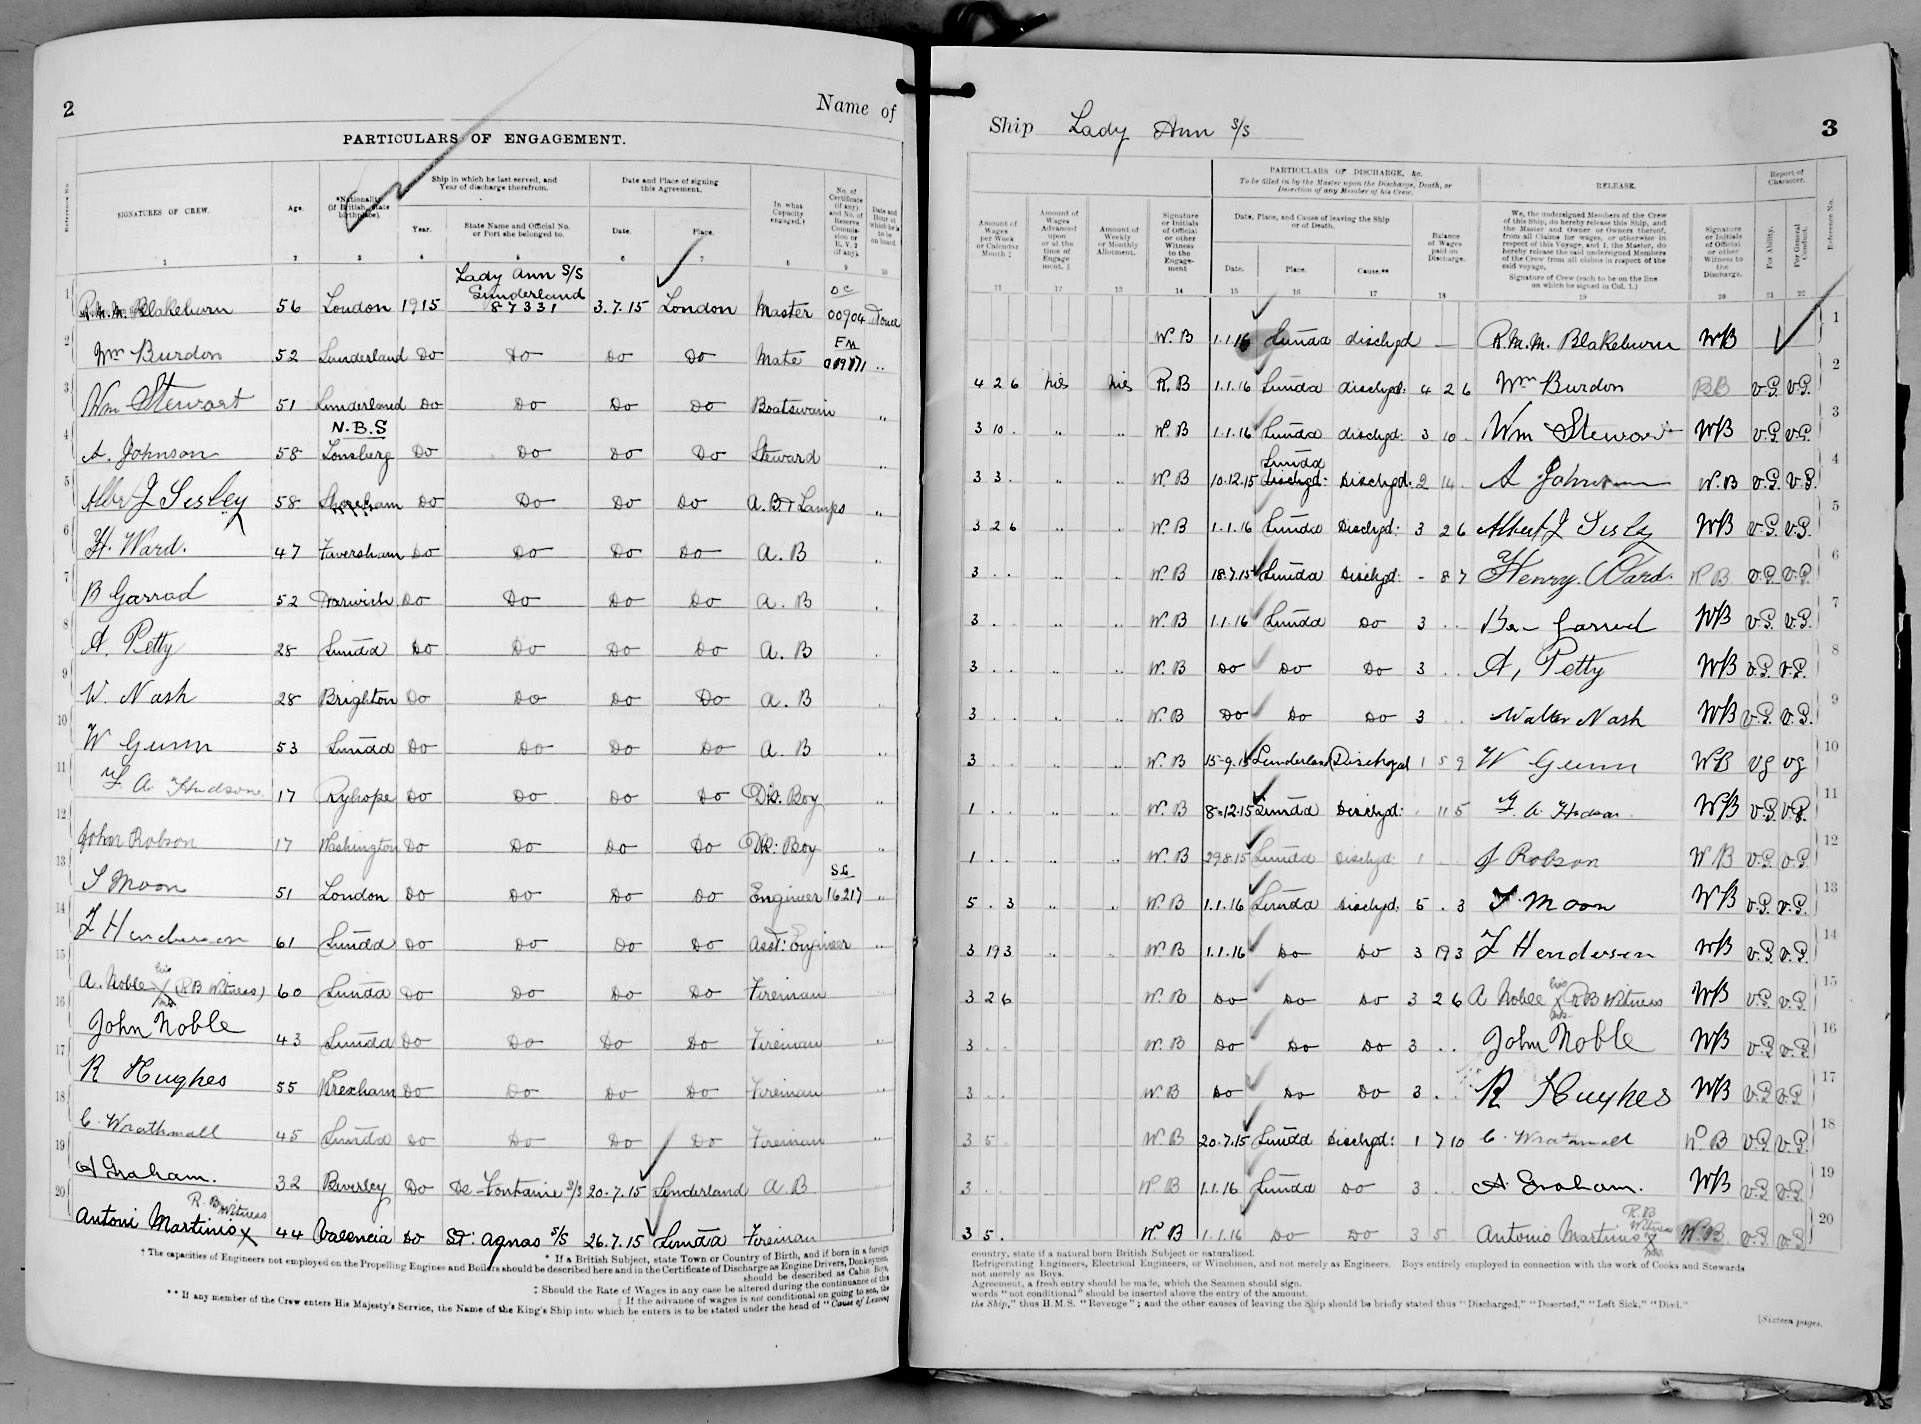 2
Name of
PARTICULARS OF ENGAGEMENT.
Reference No.
SIGNATURES OF CREW.
Age.
*Nationality (if British, state birthplace).
Ship in which he last served, and Year of discharge therefrom.
Year.
State Name and Official No. or Port she belonged to.
Date and Place of signing this Agreement.
Date.
Place.
In what Capacity engaged.†
No. of Certificate (if any) and No. of Reserve Commission or R.V.2 (if any).
Date and Hour at which he is to be on board.
1 2 3 4 5 6 7 8 9 10
1 R.M.M. Blakeburn 56 London 1915 Lady Ann S/S Sunderland 87331 3.7.15 London Master OC 00904
2 Wm Burdon 52 Sunderland Do Do Do Do Mate FM
3 Wm Stewart 51 Sunderland Do Do Do Do Boatswain ,,
4 A. Johnson 58 N.B.S Do Do Do Do Steward ,,
5 Albert J Sisley 58 Shoreham Do Do Do Do A.B + Lamps ,,
6 H. Ward. 47 Faversham Do Do Do Do A.B ,,
7 B Garrod 52 Harwich Do Do Do Do A.B
8 A. Petty 28 Sunda Do Do Do Do A.B
9 W. Nash 28 Brighton Do Do Do Do A.B ,,
10 W Gunn 53 Sunda Do Do Do Do A.B ,,
11 A Hudson 17 Ryhope Do Do Do Do Boy ,,
12 John Robson 17 Washington Do Do Do Do Boy ,,
13 T Moon 51 London Do Do Do Do Engineer 16217 ,,
14 T Henderson 61 Sunda Do Do Do Do Asst: Engineer ,,
15 A. Noble his X mk (RB Witness) 60 Sunda Do Do Do Do Fireman ,,
16 John Noble 43 Sunda Do Do Do Do Fireman ,,
17 R Hughes 55 Wrexham Do Do Do Do Fireman ,,
18 C. Wrathmall 45 Sunda Do Do Do Do Fireman ,,
19 A Graham. 32 Beverley Do De-Fontaine S/S 20.7.15 Sunderland A B
20 Antoni Martinis X R.B Witness 44 Valencia Do St: Agnas S/S 26.7.15 Sunda Fireman
* If a British Subject, state Town or Country of Birth, and if born in a foreign
† The capacities of Engineers not employed on the Propelling Engines and Boilers should be described here and in the Certificate of Discharge as Engine Drivers, Donkeymen,
should be described as Cabin Boys,
‡ Should the Rate of Wages in any case be altered during the continuance of the
|| If the advance of wages is not conditional on going to sea, the
** If any member of the Crew enters His Majesty's Service, the Name of the King's Ship into which he enters is to be stated under the head of "Cause of Leaving
Ship Lady Ann S/S
3
PARTICULARS OF DISCHARGE, &c.
To be filled in by the Master upon the Discharge, Death, or Desertion of any Member of his Crew.
RELEASE.
Report of Character.
Amount of Wages per Week or Calendar Month ‡
Amount of Wages Advanced upon or at the time of Engagement. ||
Amount of Weekly or Monthly Allotment.
Signature or Initials of Official or other Witness to the Engagement
Date, Place, and Cause of leaving the Ship or of Death.
Date.
Place.
Cause.**
Balance of Wages paid on Discharge.
We, the undersigned Members of the Crew of this Ship, do hereby release this Ship, and the Master and Owner or Owners thereof, from all Claims for wages, or otherwise in respect of this Voyage, and I, the Master, do hereby release the said undersigned Members of the Crew from all claims in respect of the said voyage.
Signature of Crew (each to be on the line on which he signed in Col. 1.)
Signature or Initials of Official or other Witness to the Discharge.
For Ability.
For General Conduct.
Reference No.
11 12 13 14 15 16 17 18 19 20 21 22
W.B 1.1.16 Sunda dischgd — R.M.M. Blakeburn WB 1
4 2 6 nil nil R.B 1.1.16 Sunda dischgd: 4 2 6 Wm Burdon RB V.G. V.G. 2
3 10 . ,, ,, W.B 1.1.16 Sunda dischgd: 3 10 . Wm Stewart WB V.G. V.G. 3
3 3 . ,, ,, W.B 10.12.15 Sunda dischgd: Dischgd. 2 14 . A Johnson W.B V.G. V.G. 4
3 2 6 ,, ,, W.B 1.1.16 Sunda Dischgd: 3 2 6 Albert J Sisley WB V.G. V.G. 5
3 . . ,, ,, W.B 18.7.15 Sunda Dischgd: - 8 7 Henry Ward. W B V.G. V.G. 6
3 . . ,, ,, W.B 1.1.16 Sunda Do 3 . . Ben Garrod WB V.G. V.G. 7
3 . . ,, ,, W.B Do Do Do 3 . . A, Petty WB V.G. V.G. 8
3 . . ,, ,, W.B Do Do Do 3 . . Walter Nash WB V.G. V.G. 9
3 W.B 15-9.15 Sunderland Dischgd 1 5 9 W Gunn WB Vg Vg 10
1 . . W.B 8-12.15 Sunda Dischgd: . 11 5 A. Hudson WB V.G. V.G. 11
1 . . W.B 29.8.15 Sunda Dischgd: 1 J Robson W B V.G. V.G. 12
5 . 3 ,, ,, W.B 1.1.16 Sunda Dischgd: 5 . 3 T. Moon WB V.G. V.G. 13
3 19 3 ,, ,, W.B 1.1.16 Do Do 3 19 3 T Henderson WB V.G. V.G. 14
3 2 6 W.B Do Do Do 3 2 6 A Noble his X mk. RB Witness WB V.G. V.G. 15
3 . . W.B Do Do Do 3 . . John Noble WB V.G. V.G. 16
3 . . W.B Do Do Do 3 . . R Hughes WB V.G. V.G. 17
3 5 . W.B 20.7.15 Sunda Dischgd: 1 7 10 C. Wrathmall W B V.G. V.G. 18
3 . . W B 1.1.16 Sunda Do 3 . . A. Graham. WB V.G. V.G. 19
3 5 . W B 1.1.16 Do Do 3 5 Antonio Martinis X R.B Witness W.B V.G. V.G. 20
country, state if a natural born British Subject or naturalized.
Refrigerating Engineers, Electrical Engineers, or Winchmen, and not merely as Engineers. Boys entirely employed in connection with the work of Cooks and Stewards
not merely as Boys.
Agreement, a fresh entry should be made, which the Seamen should sign.
words "not conditional" should be inserted above the entry of the amount.
the Ship," thus H.M.S. "Revenge"; and the other causes of leaving the Ship should be briefly stated thus "Discharged," "Deserted," "Left Sick," "Died."
[Sixteen pages.